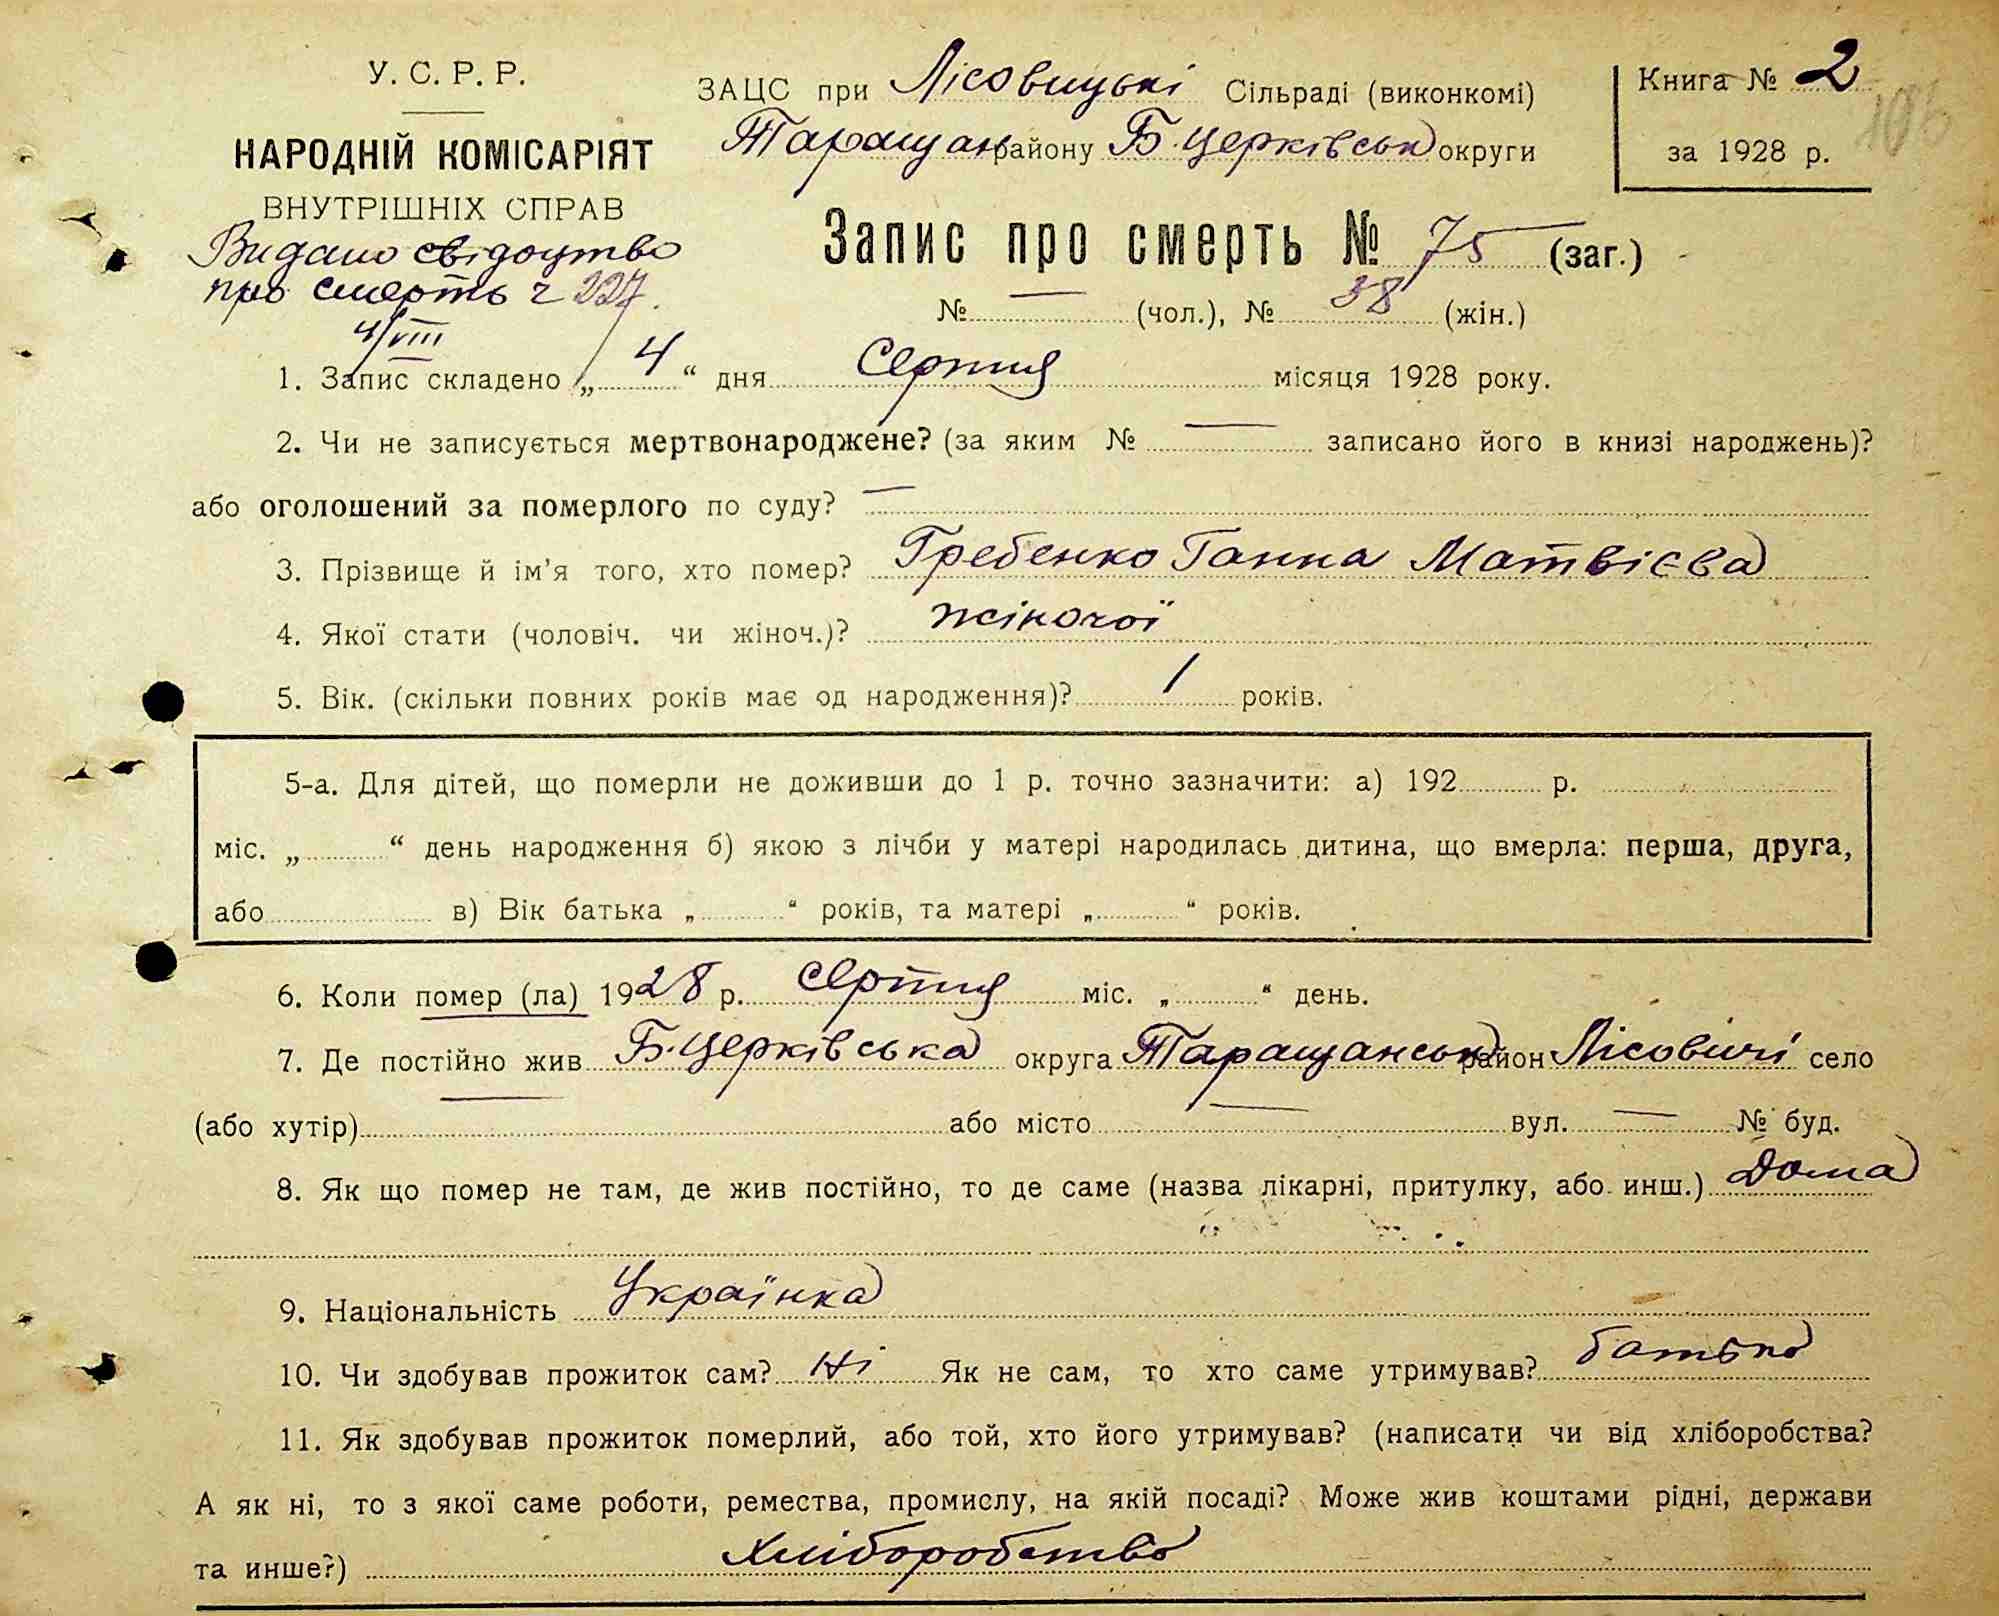 У. С. Р. Р.
НАРОДНІЙ КОМІСАРІЯТ
ВНУТРІШНІХ СПРАВ
Видано свідоцтво
про смерть ч 227.
4/VIII
ЗАЦС при Лісовицькі Сільраді (виконкомі)
Таращан району Б. Церківськ округи
Книга № 2
за 1928 р.
Запис про смерть № 75 (заг.)
№ — (чол.), № 38 (жін.)
1. Запис складено „ 4 “ дня Серпня місяця 1928 року.
2. Чи не записується мертвонароджене? (за яким № — записано його в книзі народжень)?
або оголошений за померлого по суду? —
3. Прізвище й ім’я того, хто помер? Гребенко Ганна Матвієва
4. Якої стати (чоловіч. чи жіноч.)? жіночої
5. Вік. (скільки повних років має од народження)? 1 років.
5-а. Для дітей, що померли не доживши до 1 р. точно зазначити: а) 192 р.
міс. „ “ день народження б) якою з лічби у матері народилась дитина, що вмерла: перша, друга,
або в) Вік батька „ “ років, та матері „ “ років.
6. Коли помер (ла) 1928 р. серпня міс. „ “ день.
7. Де постійно жив Б. Церківська округа Таращанськ район Лісовичі село
(або хутір) — або місто — вул. — № буд.
8. Як що помер не там, де жив постійно, то де саме (назва лікарні, притулку, або инш.) Дома
9. Національність Українка
10. Чи здобував прожиток сам? Ні Як не сам, то хто саме утримував? батько
11. Як здобував прожиток померлий, або той, хто його утримував? (написати чи від хліборобства?
А як ні, то з якої саме роботи, ремества, промислу, на якій посаді? Може жив коштами рідні, держави
та инше?) Хліборобство